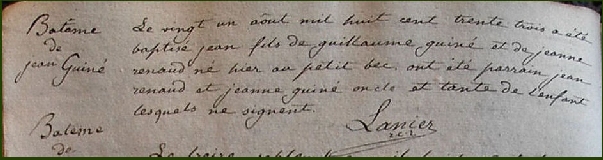 Batême
de
jean Guiné
Le vingt un aôut mil huit cent trente trois a été
baptisé jean fils de guillaume guiné et de jeanne
renaud né hier au petit bec. ont été parrain jean
renaud et jeanne guiné oncle et tante de l'enfant
lesquels ne signent.
Lanier
Batême
de